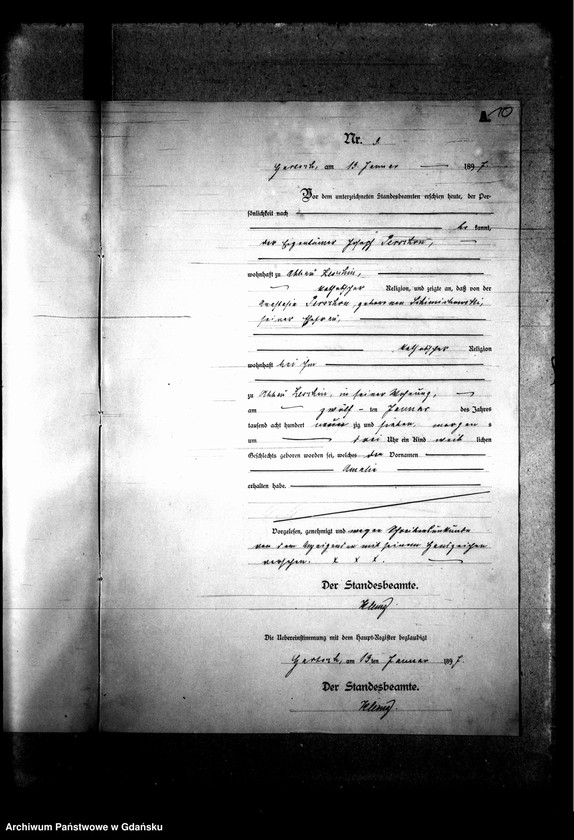 10
Nr. 9
am 13. Januar 1897.
Vor dem unterzeichneten Standesbeamten erschien heute, der Per-
sönlichkeit nach
be kannt,
der Eigentümer Joseph
wohnhaft zu Abbau
katholischer Religion, und zeigte an, daß von der
geborenen
seiner Ehefrau,
katholischer Religion
wohnhaft bei ihm
zu Abbau in seiner Wohnung,
am zwölf ten Januar des Jahres
tausend acht hundert neun zig und sieben morgens
um drei Uhr ein Kind weib lichen
Geschlechts geboren worden sei, welches den Vornamen
Amalie
erhalten habe.
Vorgelesen, genehmigt und wegen Schreibensunkunde
von dem Anzeigenden mit seinem Handzeichen
versehen. x x x.
Der Standesbeamte.
Die Uebereinstimmung mit dem Haupt-Register beglaubigt
am 13ten Januar 1897.
Der Standesbeamte.
Archiwum Państwowe w Gdańsku